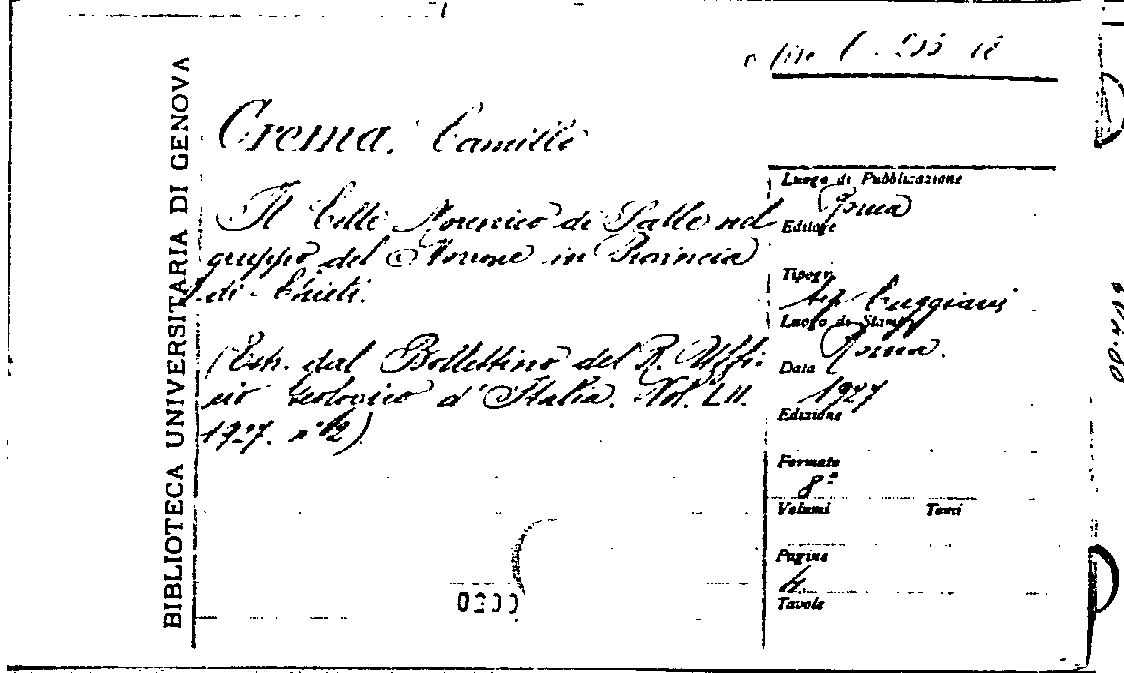 BIBLIOTECA UNIVERSITARIA DI GENOVA
Crema. Camillo
Il Colle Morenico di Salle nel
gruppo del Morrone in Provincia
di Chieti.
(Estr. dal Bollettino del R. Uffi-
cio Geologico d'Italia. Vol. LII.
1927. n° 12)
Luogo di Pubblicazione
Roma
Editore
Tipogr.
tip. Cuggiani
Luogo di Stampa
Roma.
Data
1927
Edizione
Formato
8°
Volumi Tomi
Pagine
4.
Tavole